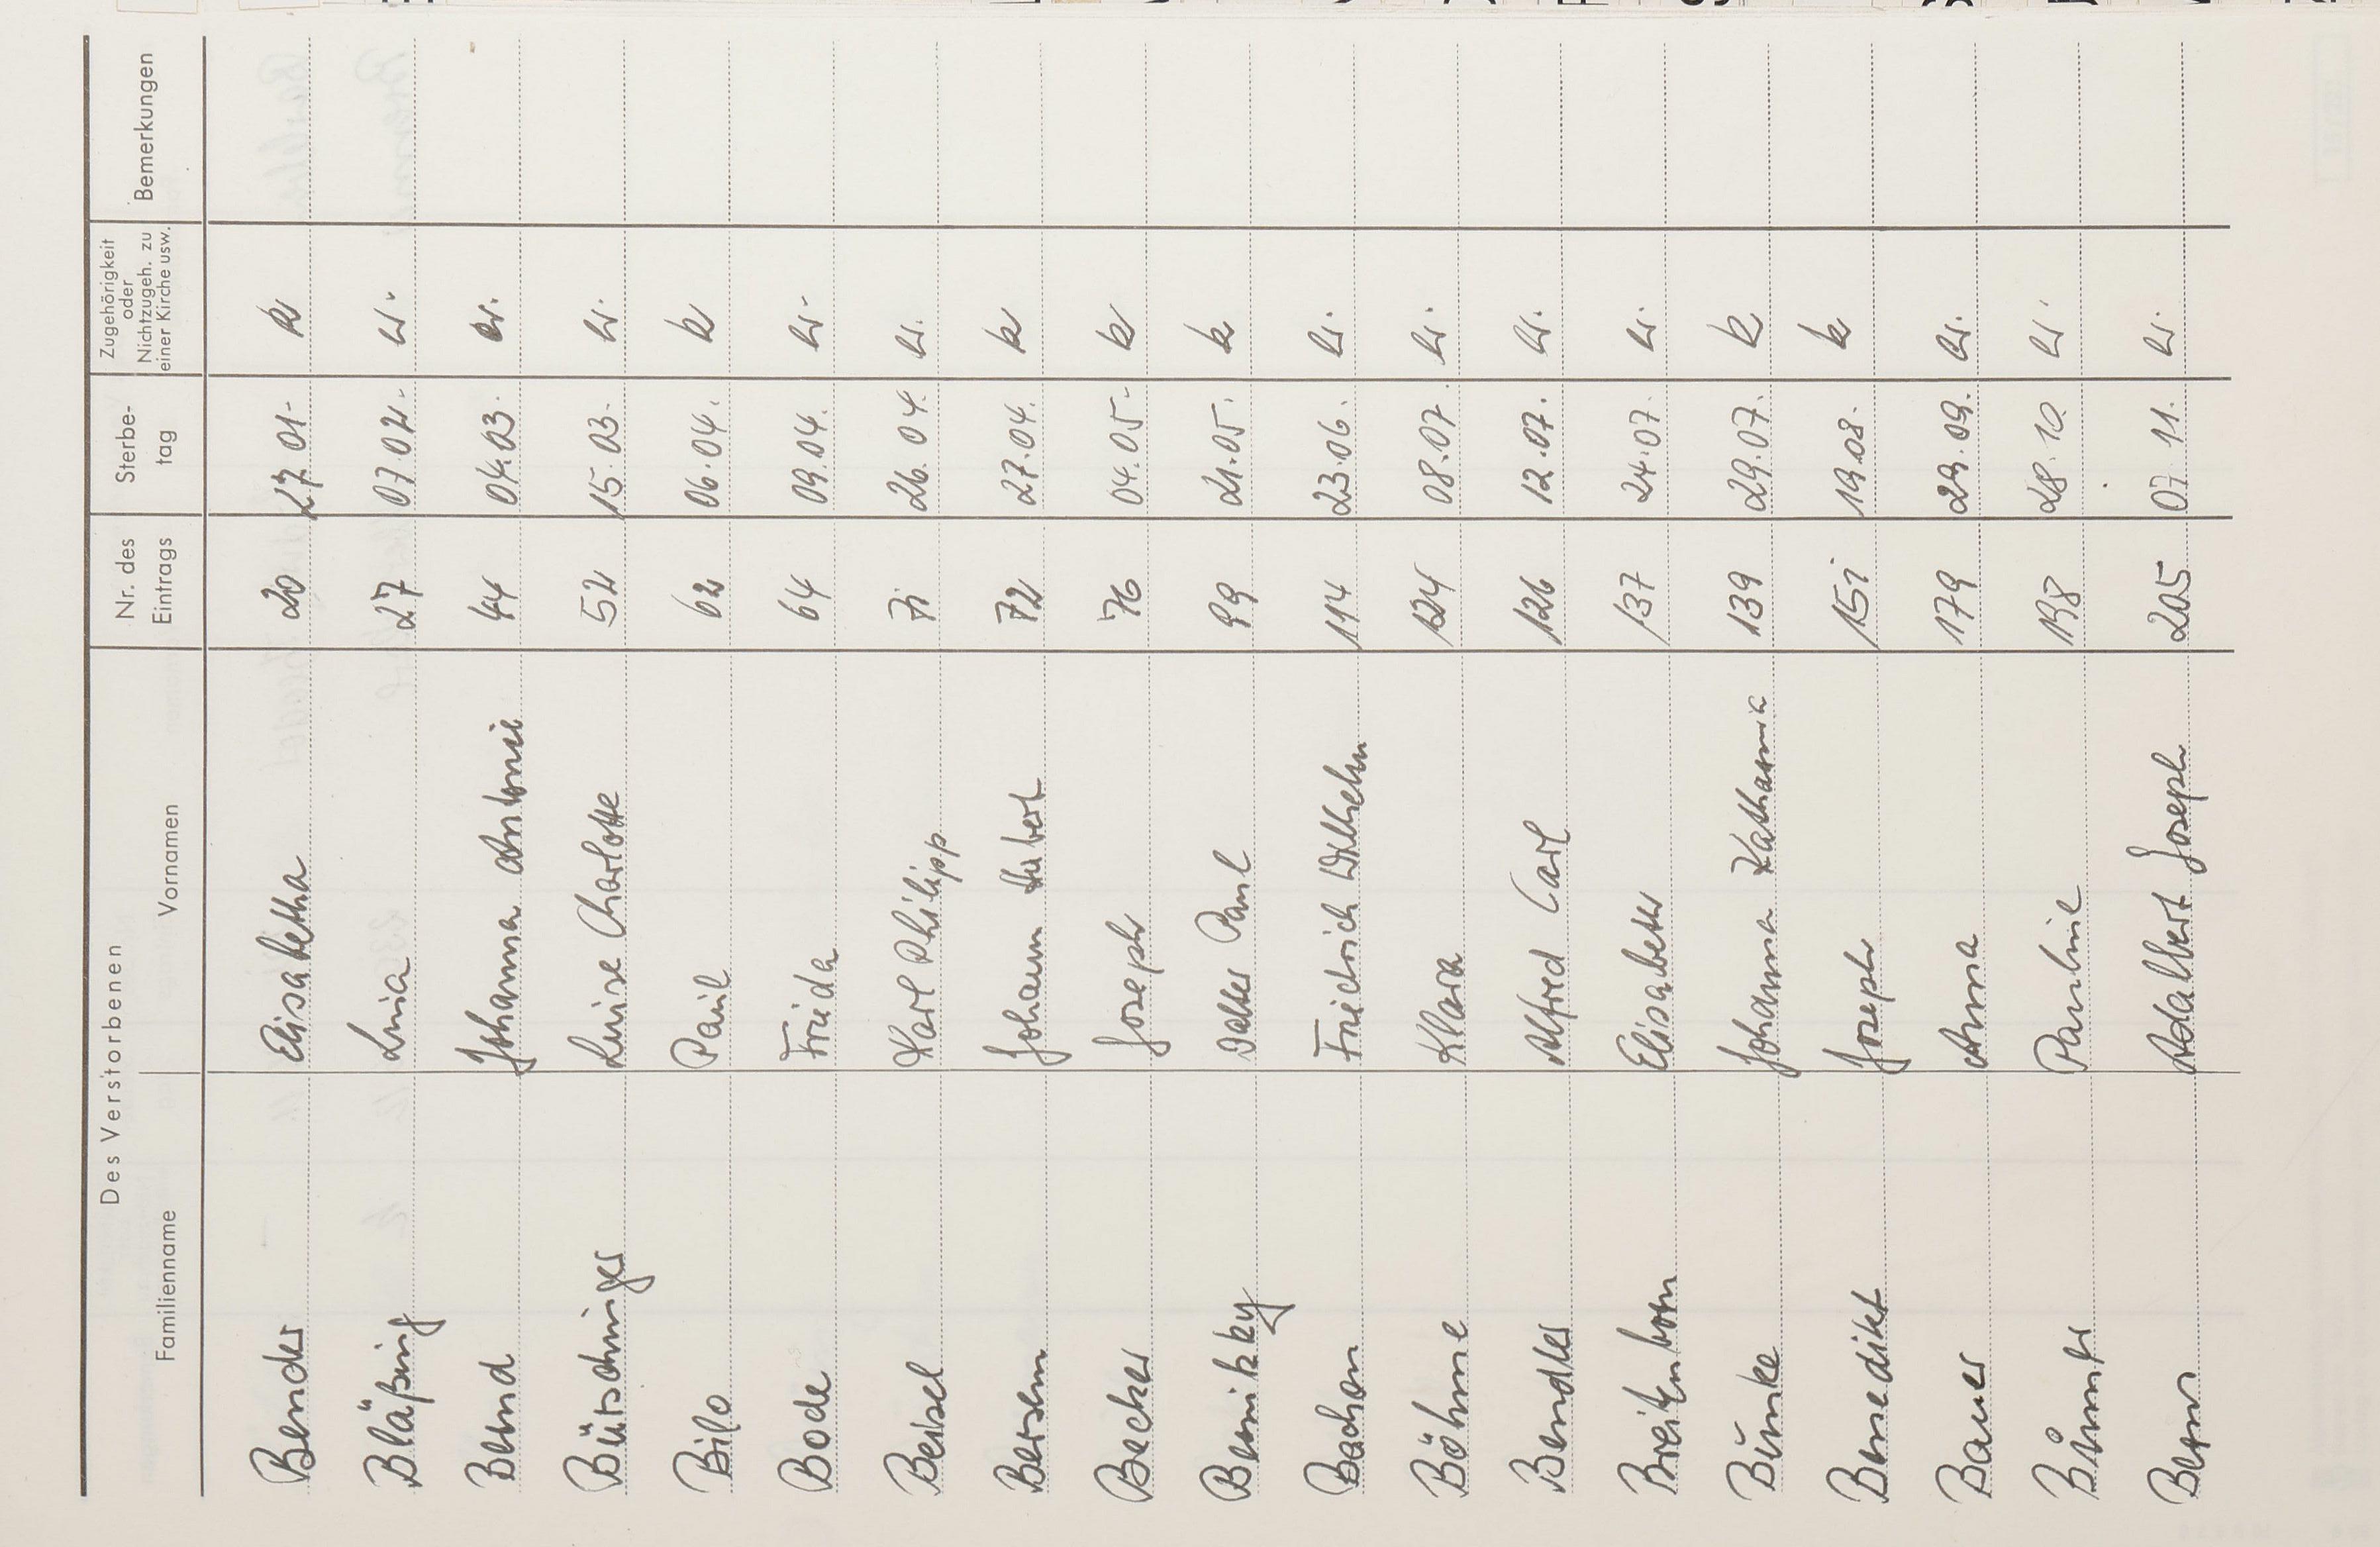 Des Verstorbenen
Familienname Vornamen Nr. des Eintrags Sterbe-tag Zugehörigkeit oder Nichtzugeh. zu einer Kirche usw. Bemerkungen
Bender Elisabetha 20 27.01. k
Bläßing Luia 27 07.02. ev.
Bernd Johanna Antonie 44 04.03. ev.
Bütschinger Luise Charlotte 52 15.03. ev.
Bilo Paul 62 06.04. k
Bode Frieda 64 09.04. ev.
Beisel Karl Philipp 71 26.04. ev.
Bersem Johann Hubert 72 27.04. k
Becker Joseph 76 04.05. k
Bemitzky Walter Paul 99 21.05. k
Bachon Friedrich Wilhelm 114 23.06. ev.
Böhme Klara 124 08.07. ev.
Bendler Alfred Carl 126 12.07. ev.
Breitenborn Elisabeth 137 24.07. ev.
Bünke Johanna Katharina 139 29.07. k
Benedikt Joseph 151 19.08. k
Bauer Anna 179 29.09. ev.
Pauline 198 28.10. ev.
Bern Adalbert Joseph 205 07.11. ev.